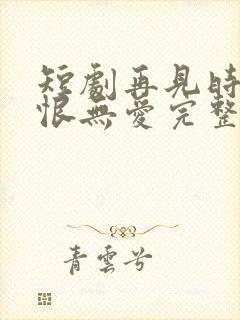 短劇再見時
恨無愛完整
青雲兮